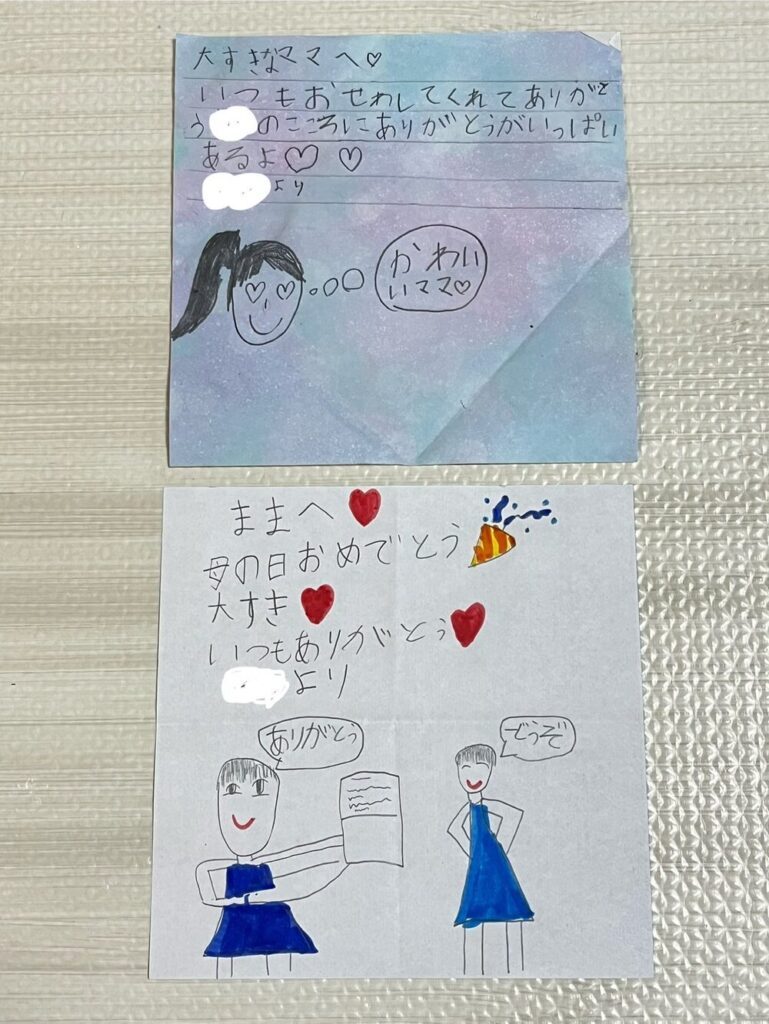 大すきなママへ♡
いつもおせわしてくれてありがと
う のこころにありがとうがいっぱい
あるよ♡ ♡
より
かわい
いママ♡
ままへ♥
母の日おめでとう
大すき♥
いつもありがとう♥
より
ありがとう
どうぞ